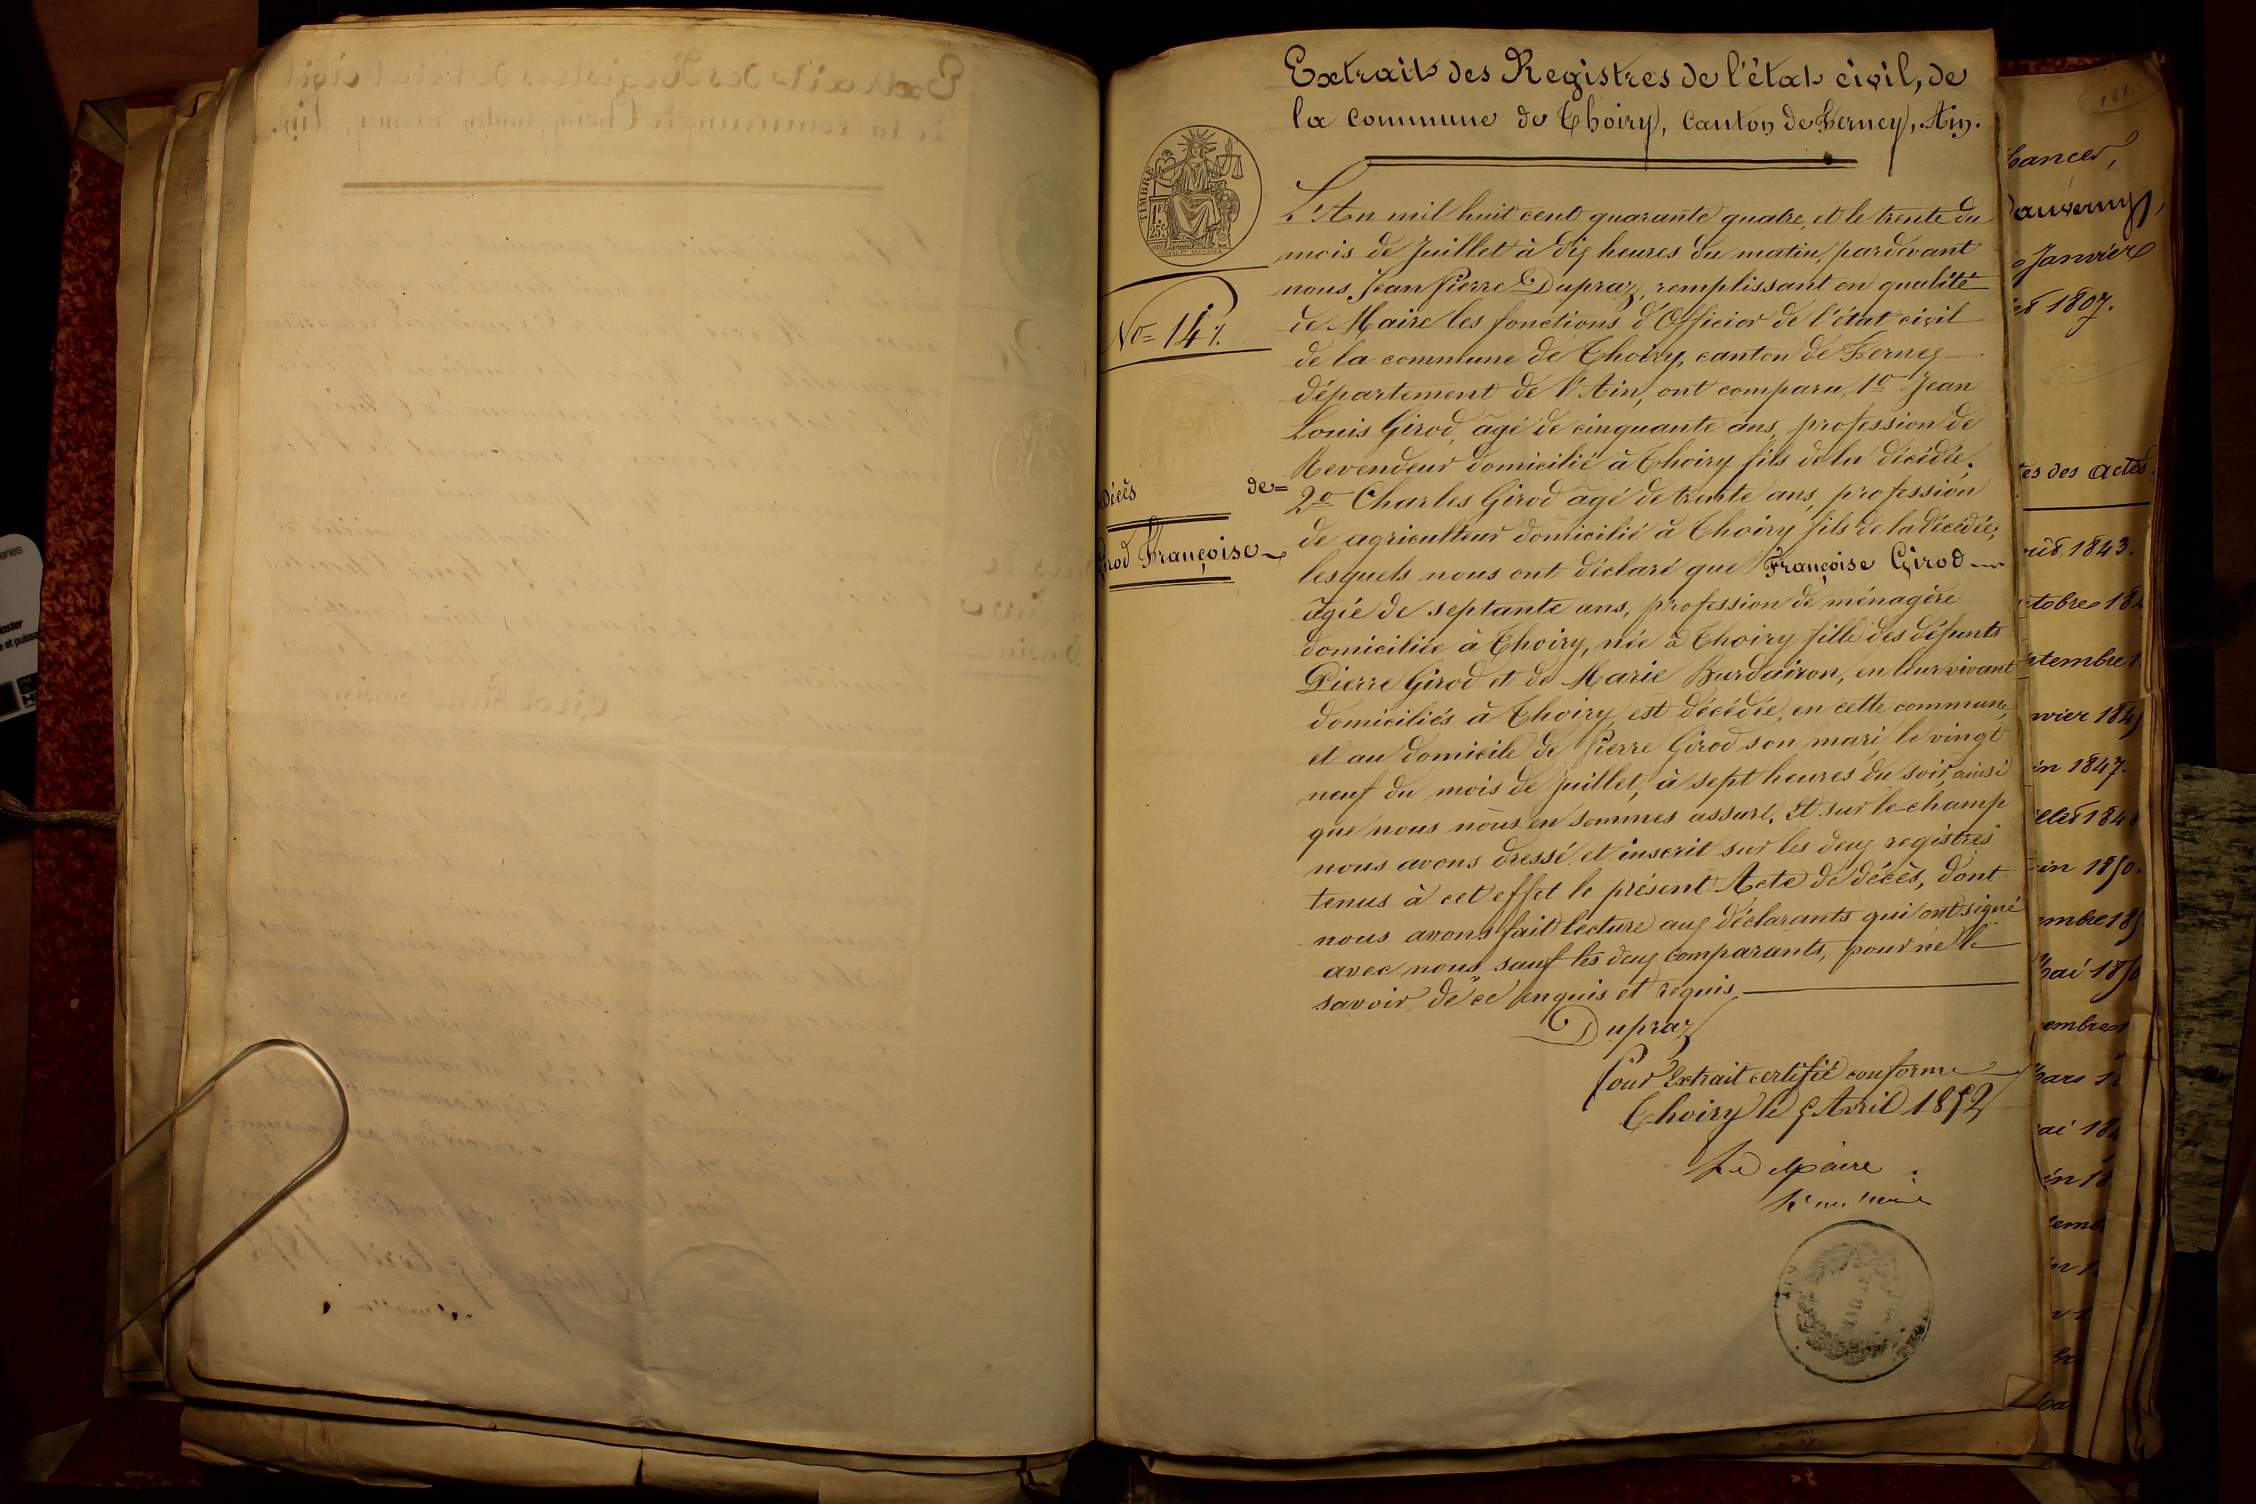 Extrait des Registres de l'état civil, de
la commune de Thoiry, canton de Ferney, Ain.
TIMBRE
1 FR
25 C
No = 147.
Décès de=
Girod Françoise
L'An mil huit cent quarante quatre, et le trente du
mois de Juillet à dix heures du matin, pardevant
nous, Jean Pierre Dupraz, remplissant en qualité
de Maire les fonctions d'Officier de l'état civil
de la commune de Thoiry, canton de Ferney
département de l'Ain, ont comparu, 1o Jean
Louis Girod, agé de cinquante ans, profession de
Revendeur domicilié à Thoiry fils de la décédée.
2o Charles Girod agé de trente ans, profession
de agriculteur domicilié à Thoiry fils de la décédée,
lesquels nous ont déclaré que Françoise Girod
agée de septante ans, profession de ménagère
domiciliée à Thoiry, née à Thoiry fille des défunts
Pierre Girod et de Marie Burdairon, en leur vivant
domiciliés à Thoiry, est décédée, en cette commune,
et au domicile de Pierre Girod son mari, le vingt
neuf du mois de Juillet, à sept heures du soir, ainsi
que nous nous en sommes assuré. Et sur le champ
nous avons dressé et inscrit sur les deux registres
tenus à cet effet le présent Acte de décès, dont
nous avons fait lecture aux déclarants qui ont signé
avec nous sauf les deux comparants, pour ne le
savoir de ce enquis et requis
Dupraz
Pour Extrait certifié conforme
Thoiry le 5 Avril 1852
Le Maire
181.
Janvier
1807.
des actes
1843.
1847.
1850.